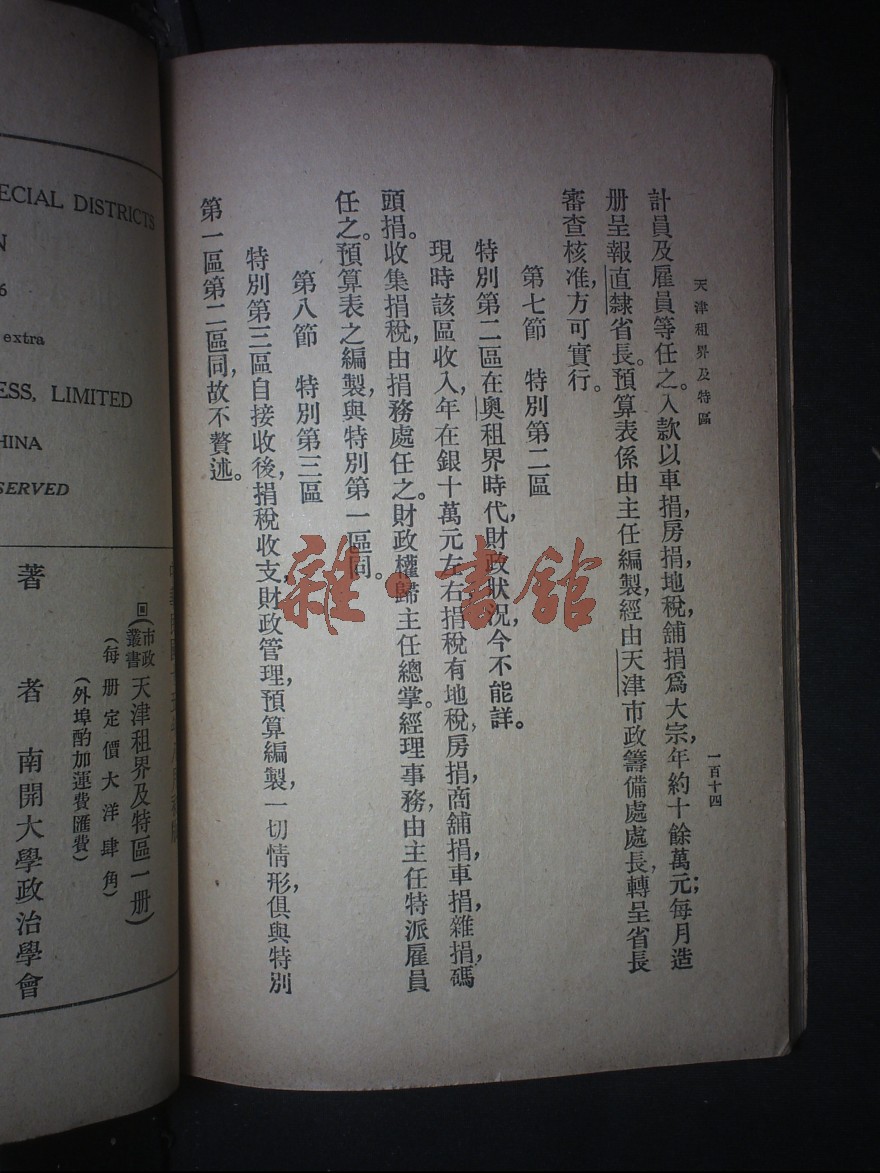 天津租界及特區
一百十四
計員及雇員等任之。入款以車捐，房捐，地稅，舖捐爲大宗，年約十餘萬元；每月造
册呈報直隸省長。預算表係由主任編製，經由天津市政籌備處處長，轉呈省長
審查核准，方可實行。
第七節　特別第二區
特別第二區在奧租界時代，財政狀况，今不能詳。
現時該區收入，年在銀十萬元左右，捐稅有地稅，房捐，商舖捐，車捐，雜捐，碼
頭捐。收集捐稅，由捐務處任之。財政權歸主任總掌。經理事務，由主任特派雇員
任之。預算表之編製，與特別第一區同。
第八節　特別第三區
特別第三區自接收後，捐稅收支，財政管理，預算編製，一切情形，俱與特別
第一區第二區同，故不贅述。
雜·書館
ECIAL DISTRICTS
N
6
extra
ESS, LIMITED
HINA
SERVED
回(市政叢書天津租界及特區一册)
(每册定價大洋肆角)
(外埠酌加運費匯費)
著者　南開大學政治學會